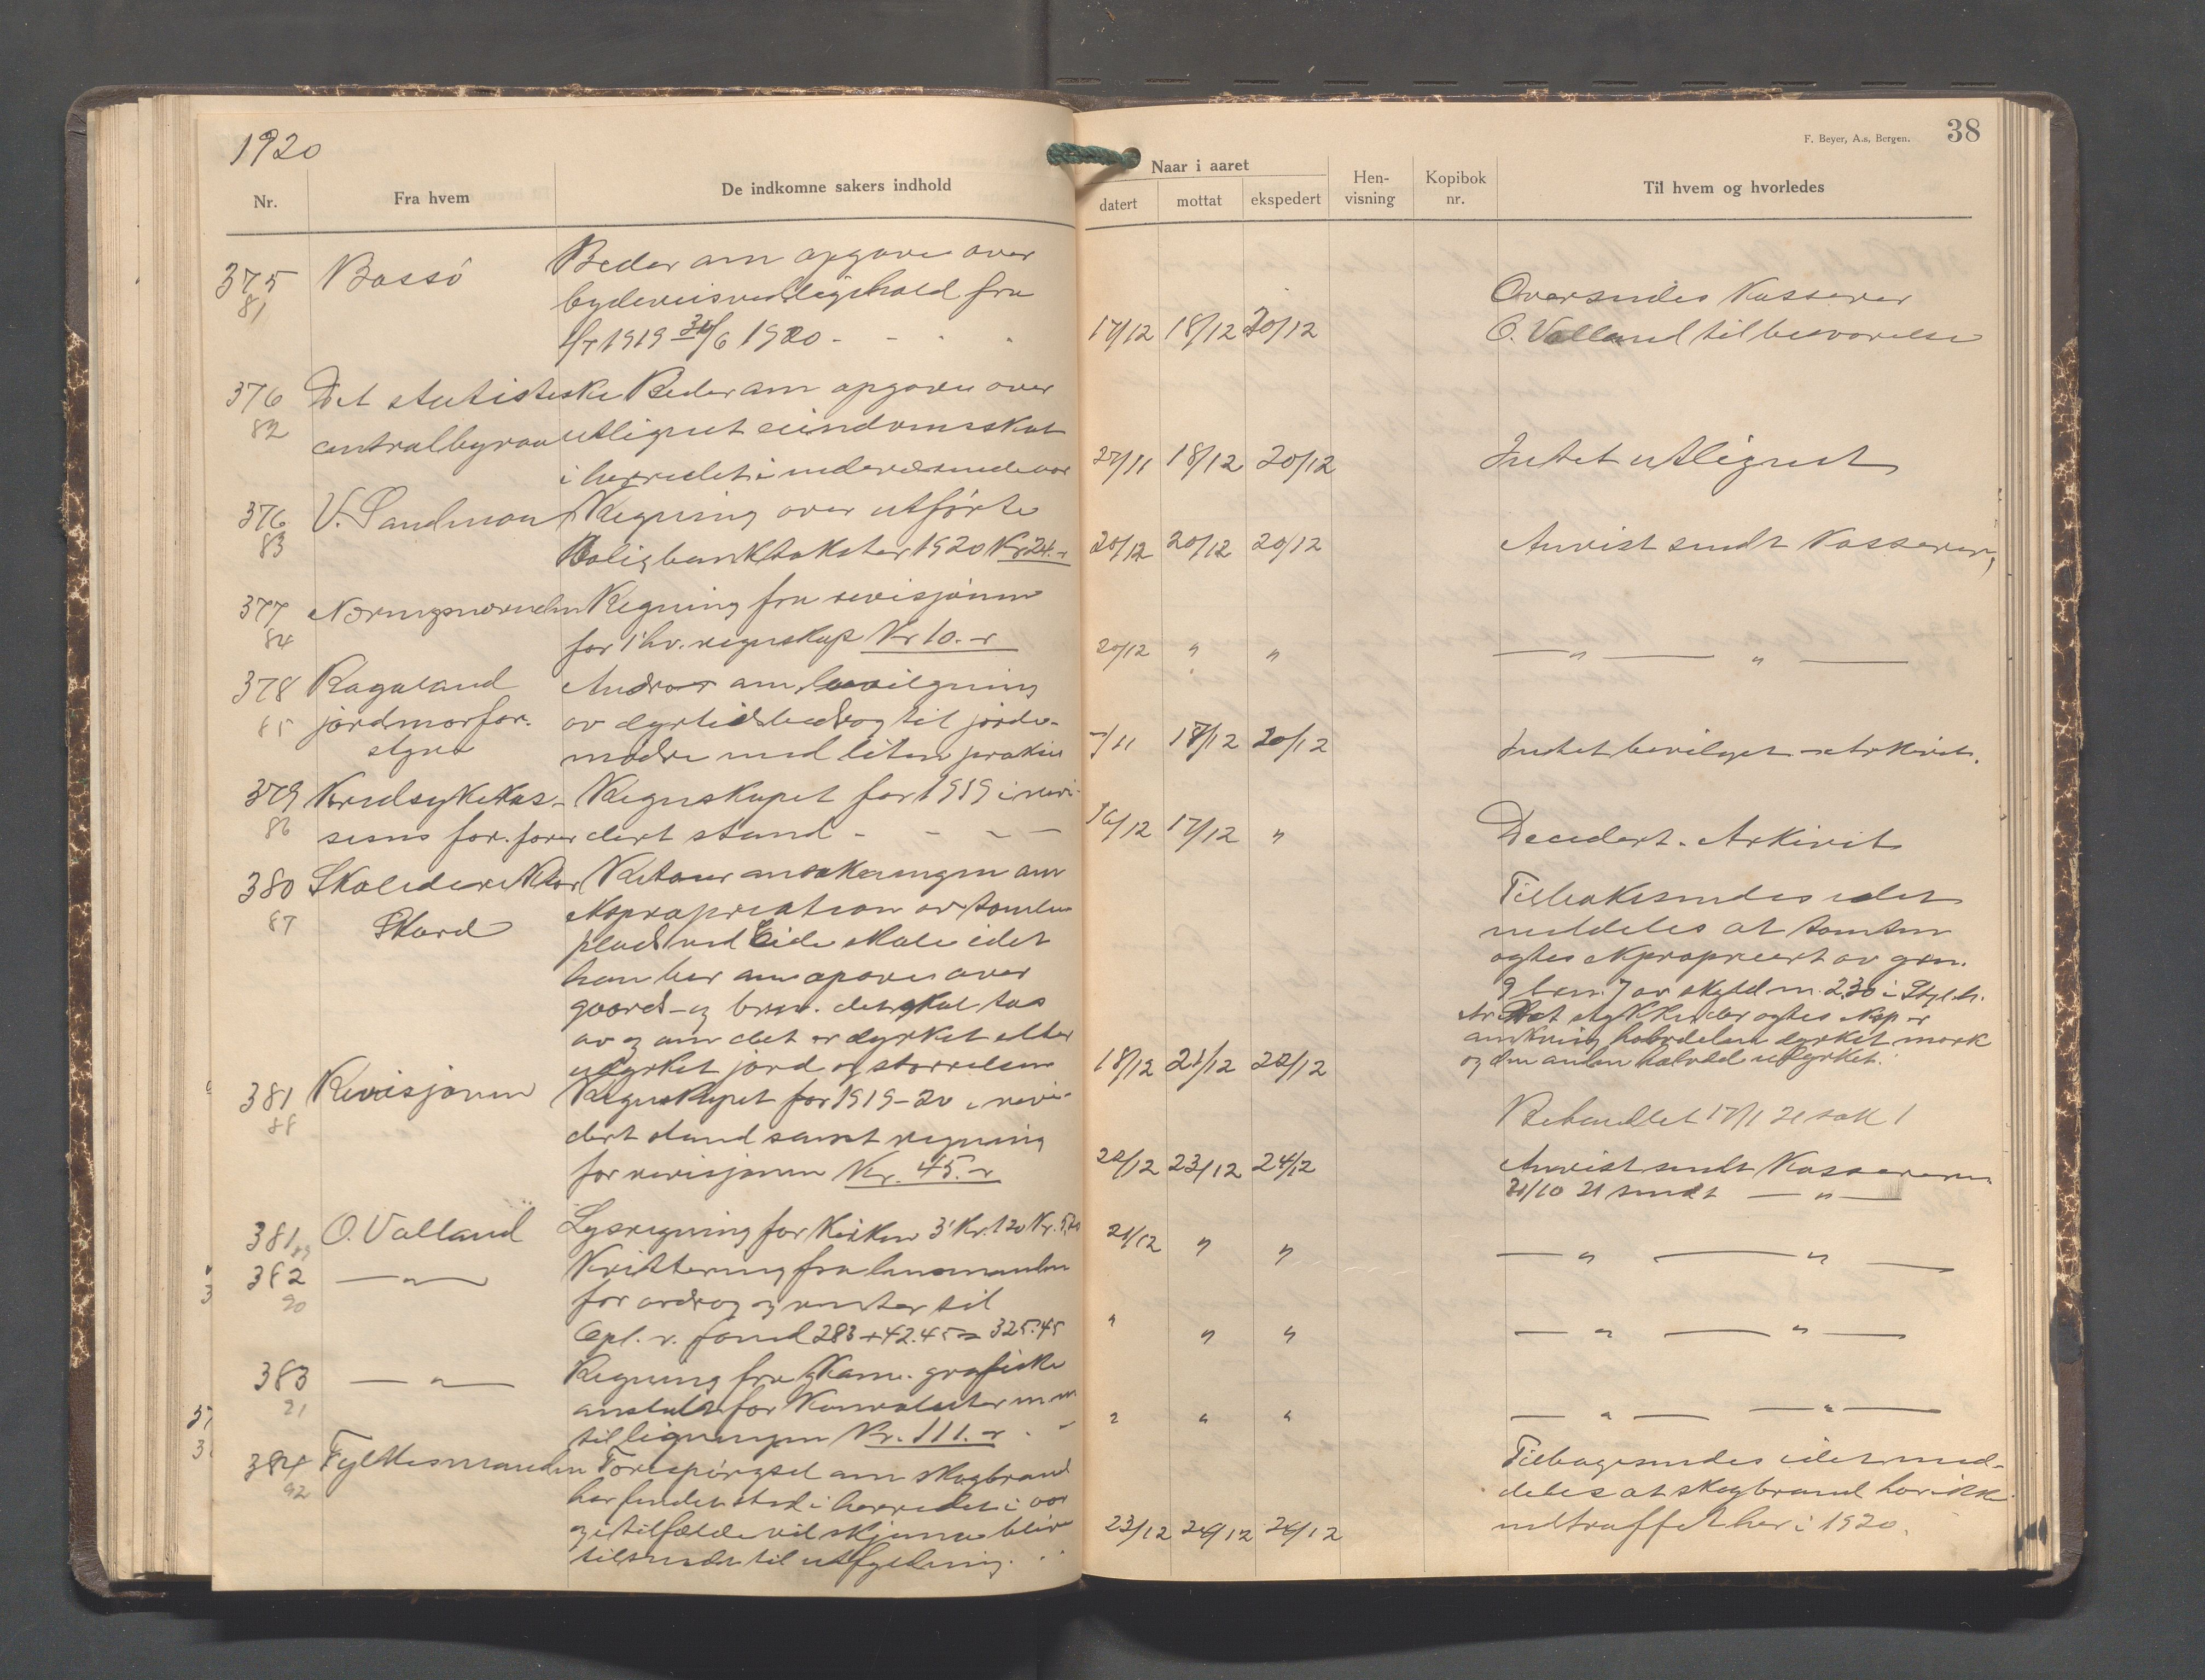 1920
38
F. Beyer, A.s, Bergen.
Nr.
Fra hvem
De indkomne sakers indhold
Naar i aaret
datert
mottat
ekspedert
Hen-
visning
Kopibok
nr.
Til hvem og hvorledes
375
81
Bassö
Beder om opgave over
bydeveisvedligehold fra
1/7 1919 30/6 1920 - - - -
17/12 18/12 20/12
Oversendes Kasserer
O. Valland til besvarelse
376
82
Det statistiske
centralbyraa
Beder om opgave over
utlignet eiendomsskat
i herredet i nedværende aar
27/11 18/12 20/12
Intet utlignet
376
83
V. Sandmon
Regning over utførte
Boligbanktakster 1920 Kr 24.-
20/12 20/12 20/12
Anvist sendt Kasseren,
377
84
Næringsnevnden
Regning fra revisjonen
for 1 hv. regnskap Kr 10.-
20/12 " "
— " — " —
378
85
Rogaland
jordmorfor.
styre
Andrar om bevilgning
av dyrtidsbidrag til jorde-
mødre med liten praksis
-/11 18/12 20/12
Intet bevilget - Arkivet.
379
86
Kredssykekas-
sens for. fører
Regnskapet for 1919 i revi-
dert stand - - - -
16/12 17/12 "
Decedert. Arkivet
380
87
Skoledirektør
Skard
Retour ansøkningen om
ekspropriation av tomten
plads ved Eide skole idet
han ber om opgave over
gaards- og brnr. det skal tas
av og om det er dyrket eller
udyrket jord og størrelsen
18/12 21/12 22/12
Tilbakesendes idet
meddeles at tomten
agtes ekspropriert av grn.
9 brn. 7 av skyld m. 2,30 i
Av det stykke der agtes eksp er
omkring halvdelen dyrket mark
og den anden halvdel udyrket.
381
88
Revisjonen
Regnskapet for 1919-20 i revi-
dert stand samt regning
for revisjonen Kr. 45.-
22/12 23/12 24/12
Behandlet 17/1 21 sak 1
Anvist sendt Kassereren
21/10 21 sendt — " —
381
89
O. Valland
Lysregning for Kirken 3' Kr. 120 Kr.
21/12 " "
— " — " —
382
90
— " —
Kvittering fra lensmanden
for avdrag og renter til
Opl. v. fond 283 + 42.45 = 325.45
" " "
— " — " —
383
91
— " —
Regning fra Kam. grafiske
anstalt for Konvolutter m m
til ligningen Kr. 111.-
" " "
— " — " —
384
92
Fylkesmanden
Forespørgsel om skogbrand
har fundet sted i herredet i aar
og i tilfælde vil skjema blive
tilsendt til utfyldning.
23/12 24/12 24/12
Tilbagesendes idet med-
deles at skogbrand har ikke
indtruffet her i 1920.